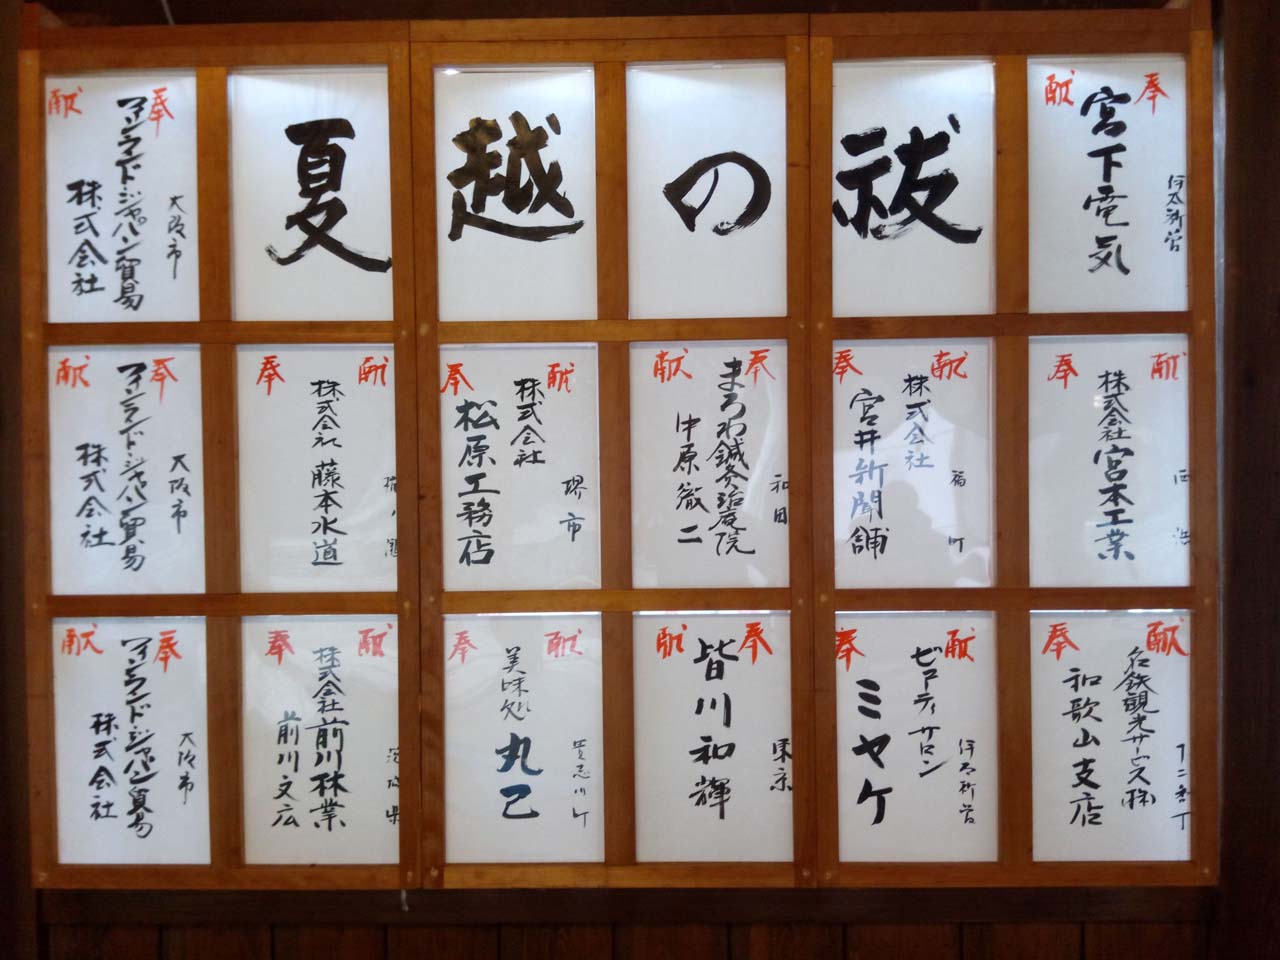 夏越の祓
奉献
大阪市
フィンランド・ジャパン貿易
株式会社
奉献
伊太祈曽
宮下電気
奉献
大阪市
フィンランド・ジャパン貿易
株式会社
奉献
株式会社 藤本水道
奉献
堺市
株式会社
松原工務店
奉献
和田
まろわ鍼灸治療院
中原徹二
奉献
福町
株式会社
宮井新聞舗
奉献
西浜
株式会社宮本工業
奉献
大阪市
フィンランド・ジャパン貿易
株式会社
奉献
株式会社前川林業
前川文広
奉献
貴志川町
美味処
丸己
奉献
東京
皆川和輝
奉献
伊太祈曽
ビューティサロン
ミヤケ
奉献
十二番丁
名鉄観光サービス(株)
和歌山支店